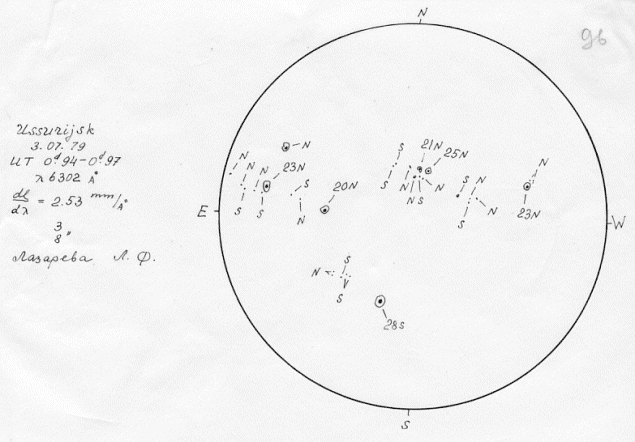 N
96
Ussurijsk
3.07.79
UT 0ᵈ.94-0ᵈ.97
λ 6302 A°
dl/dλ = 2.53 mm/A°
3
8"
Лазарева Л. Ф.
E
W
S
N
N
N
S
S
23N
N
S
N
20N
S
N
S
21N
25N
N
N
S
N
S
S
N
N
23N
N
N
S
S
28S